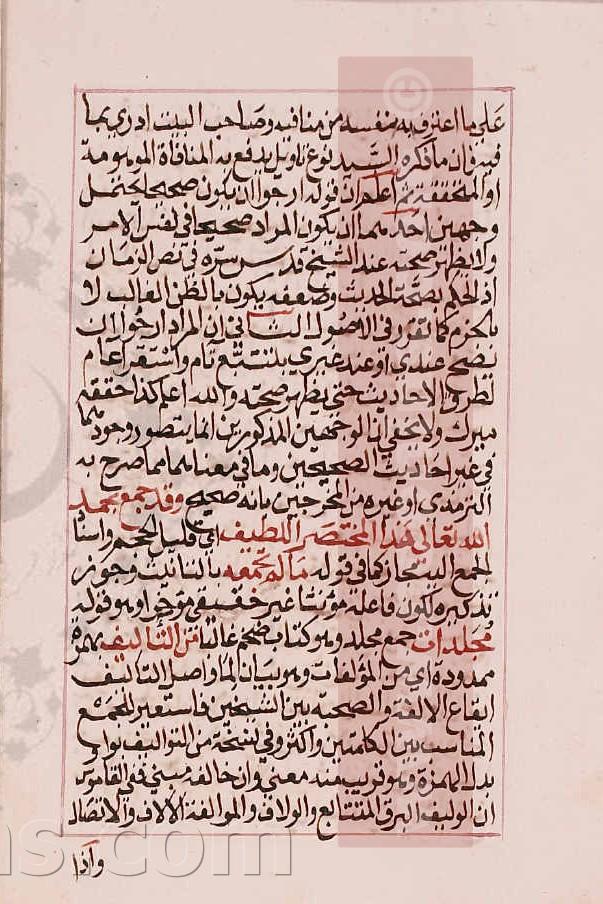 على ما اعترف به بنفسه من منافيه وصاحب البيت ادرى بما
فيه وان ما ذكره السيد نوع تاويل يدفع به المنافاة الموهومة
او المتحققة ثم اعلم ان قوله ارجو ان يكون صحيحا يحتمل
وجهين احدهما ان يكون المراد صحيحا في نفس الامر
ولا يظهر صحته عند الشيخ قدس سره في نص الزمان
اذ الحكم بصحة الحديث وضعفه يكون بالظن الغالب لا
بالجزم كما تقرر في الاصول الثاني ان المراد ارجو ان
تصح عندي او عند غيري بتتبع تام واستقراء عام
لطرق الاحاديث حتى يظهر صحته والله اعلم كذا حققه
ميرك ولا يخفى ان الوجهين المذكورين انما يتصور وجودهما
في غير احاديث الصحيحين وما في معناهما مما صرح به
الترمذي او غيره من المخرجين بانه صحيح وقد جمع بحمد
الله تعالى هذا المختصر اللطيف اي قليل الحجم واسناد
الجمع اليه مجاز كما في قوله ما لم تجمعه بالتانيث وجوز
تذكيره لكون فاعله مؤنثا غير حقيقي مؤخرا وهو قوله
مجلدات جمع مجلد وهو كتاب ضخم غالبا من التاليف بهمزة
ممدودة اي من المؤلفات وهو بيان لما واصل التاليف
ايقاع الالفة والصحبة بين الشيئين فاستعير للجمع
المناسب بين الكلمتين واكثر وفي نسخة من التواليف بواو
بدل الهمزة وهو قريب منه معنى وان خالفه مبنى ففي القاموس
ان الوليف البرق المتتابع والولاف والموالفة الالاف والاتصال
واذا
ns.com